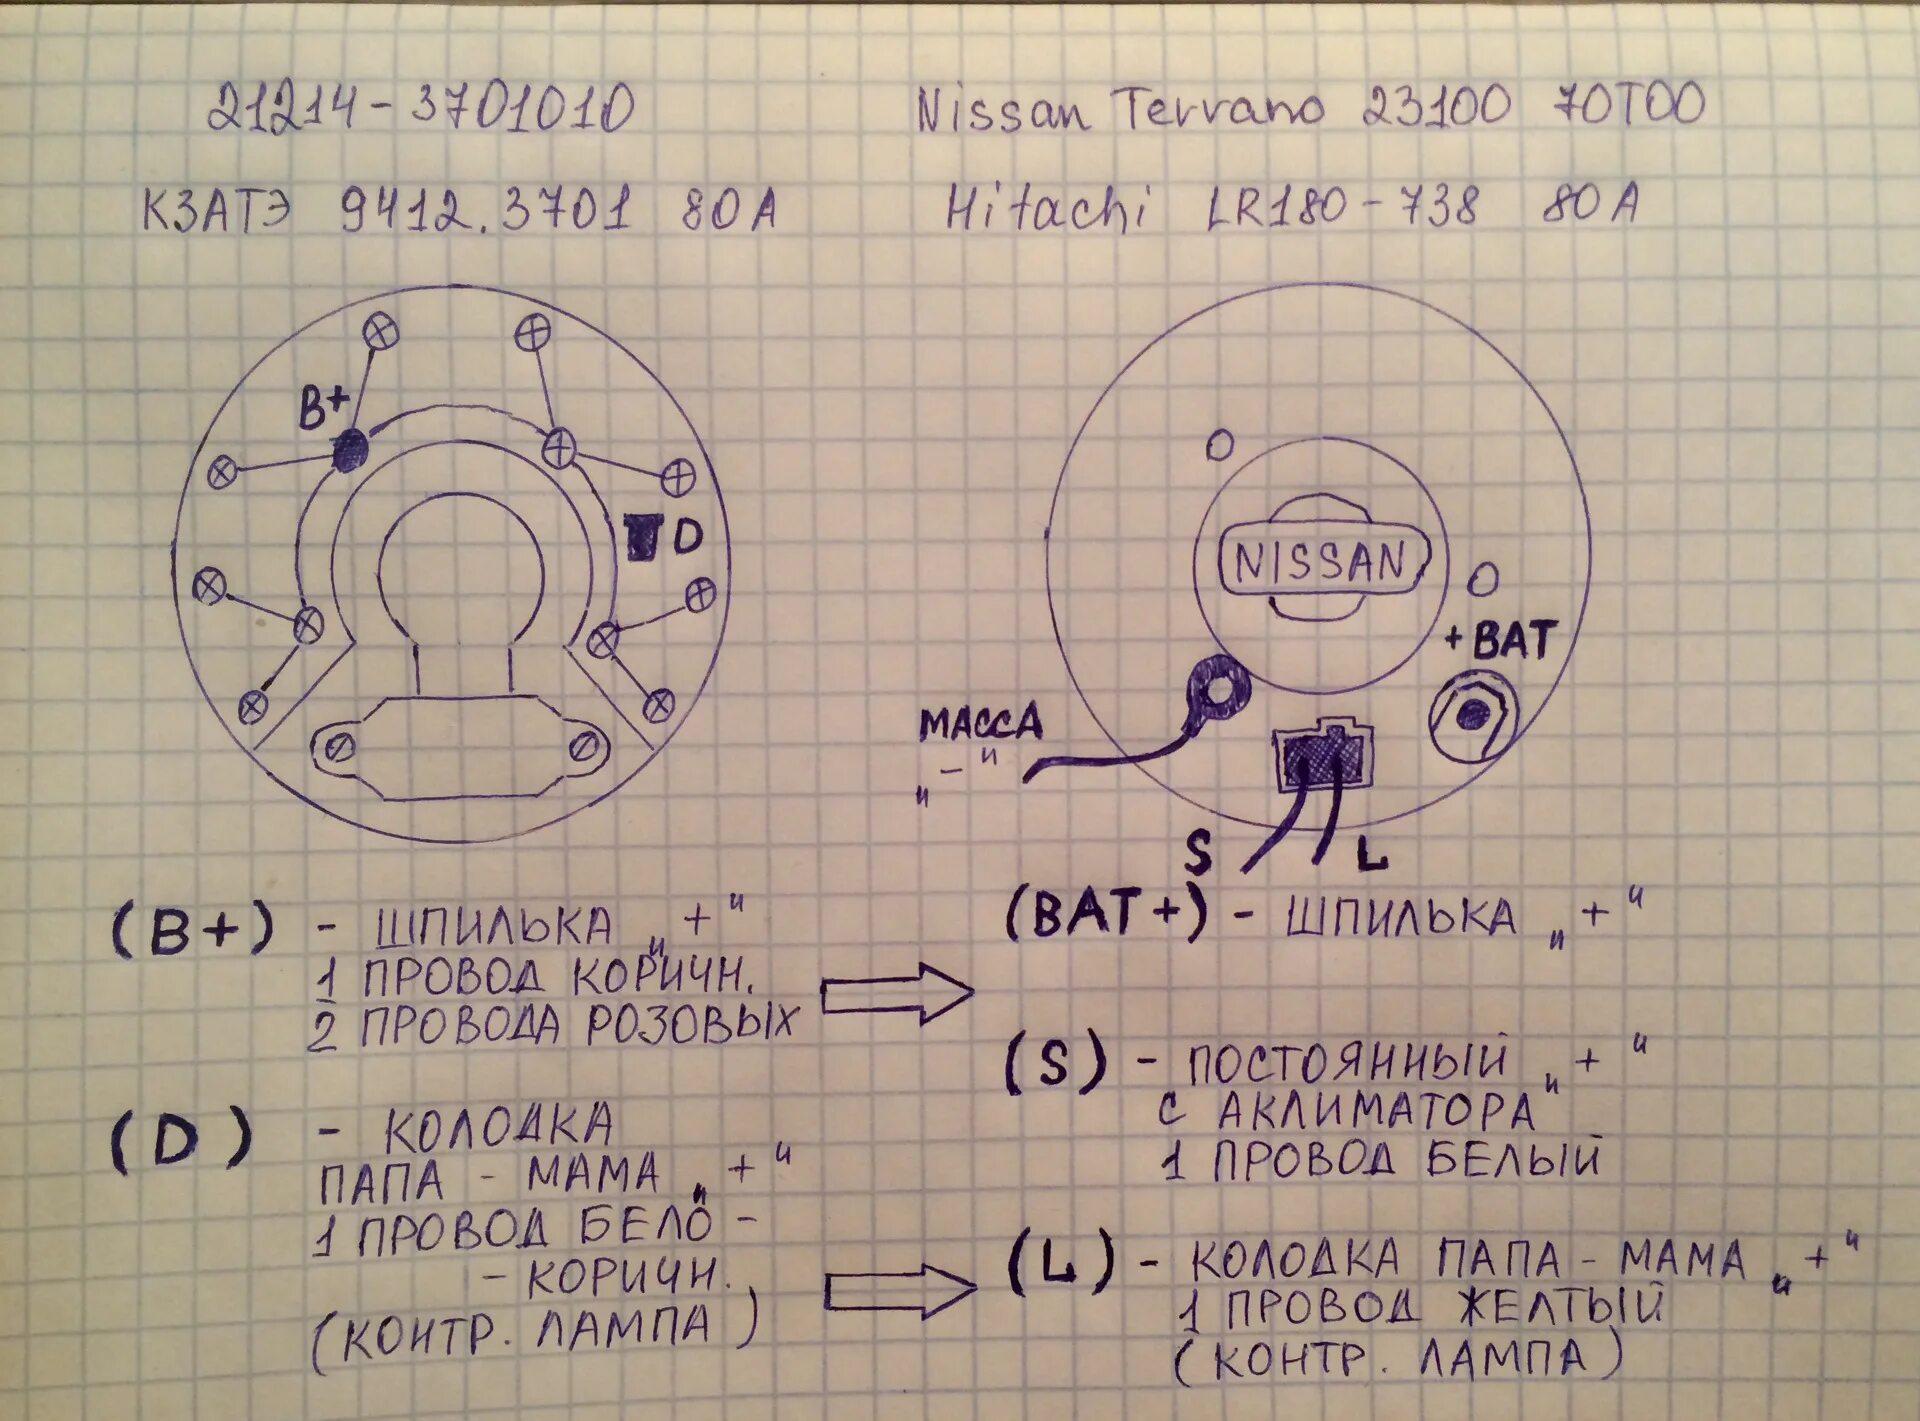 21214-3701010
КЗАТЭ 9412.3701 80А
B+
D
(B+) - ШПИЛЬКА „+“
1 ПРОВОД КОРИЧН.
2 ПРОВОДА РОЗОВЫХ
(D) - КОЛОДКА
ПАПА - МАМА „+“
1 ПРОВОД БЕЛО -
- КОРИЧН.
(КОНТР. ЛАМПА)
Nissan Terrano 23100 70T00
Hitachi LR180-738 80A
NISSAN
+BAT
МАССА
„-“
S
L
(BAT+) - ШПИЛЬКА „+“
(S) - ПОСТОЯННЫЙ „+“
С АКЛИМАТОРА
1 ПРОВОД БЕЛЫЙ
(L) - КОЛОДКА ПАПА - МАМА „+“
1 ПРОВОД ЖЕЛТЫЙ
(КОНТР. ЛАМПА)